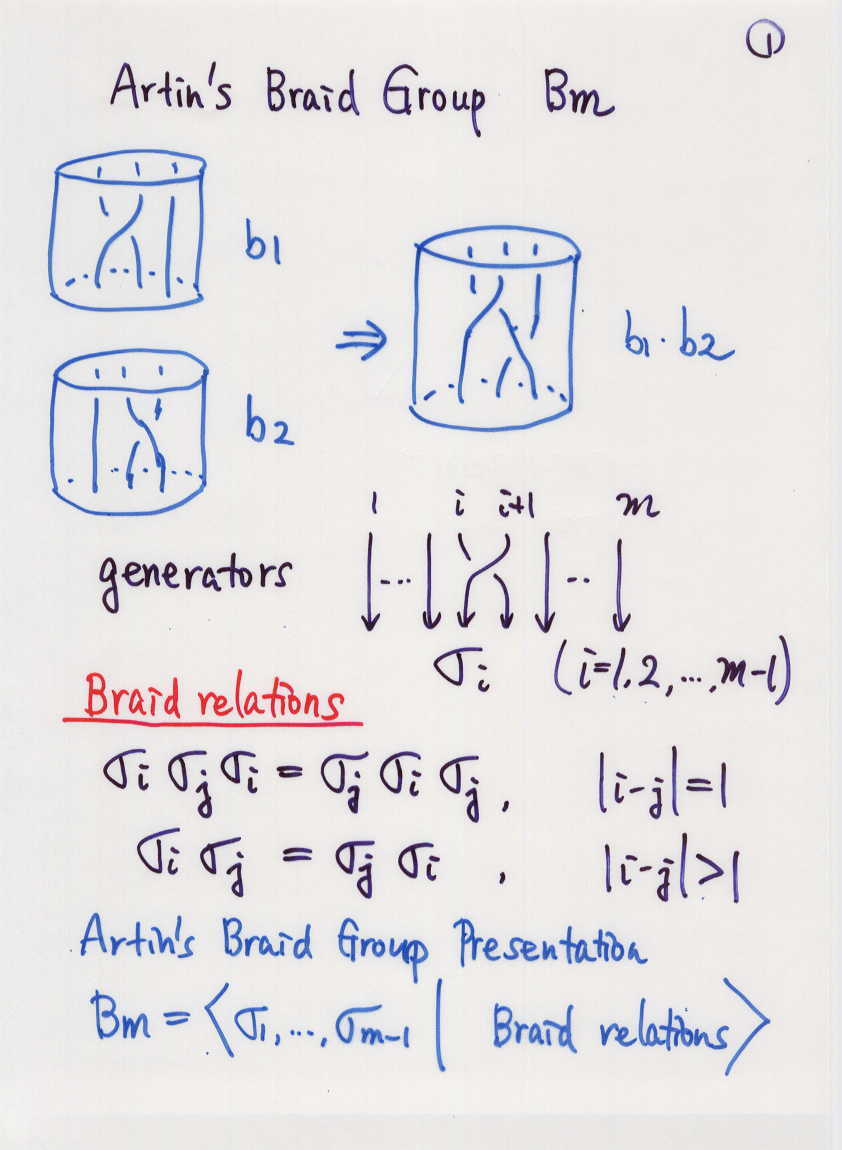 ①
Artin's Braid Group Bm
b1
⇒ b1·b2
b2
1 i i+1 m
generators
σi (i=1,2,...,m-1)
Braid relations
σi σj σi = σj σi σj, |i-j|=1
σi σj = σj σi , |i-j|>1
Artin's Braid Group Presentation
Bm = ⟨σ1,...,σm-1 | Braid relations⟩